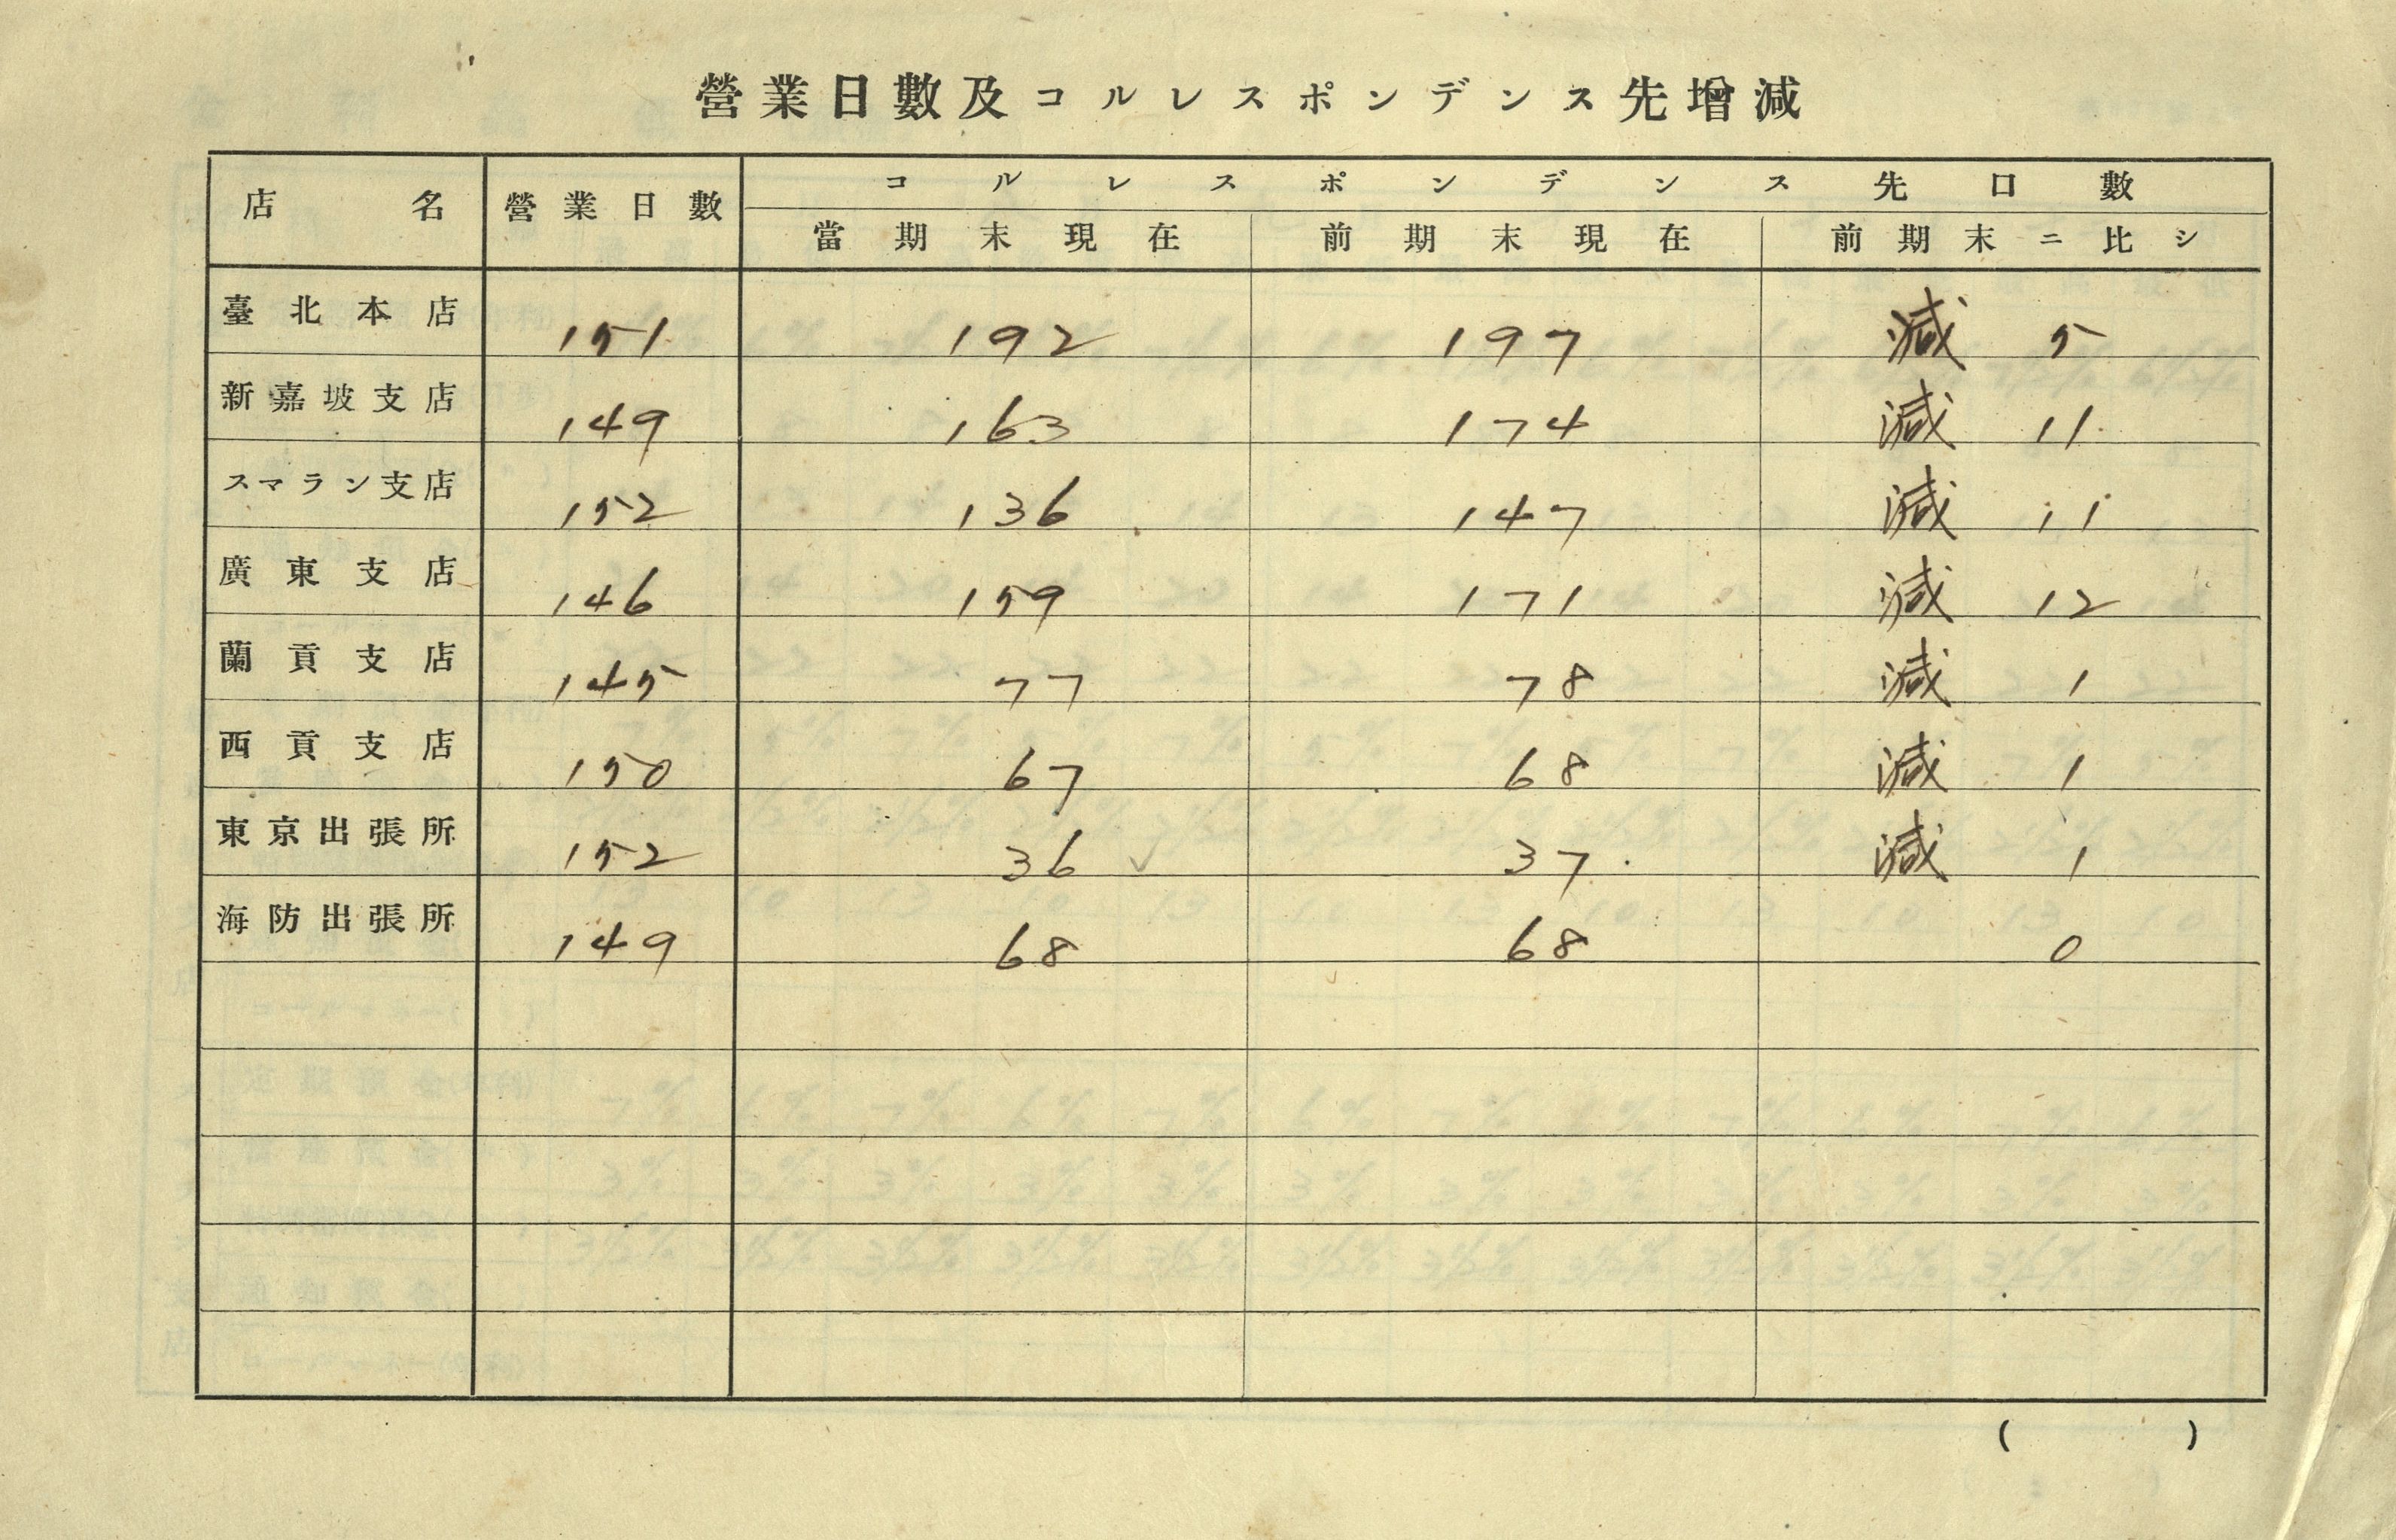 營業日數及コルレスポンデンス先增減
店名 營業日數 コルレスポンデンス先口數
當期末現在 前期末現在 前期末ニ比シ
臺北本店 151 192 197 減 5
新嘉坡支店 149 163 174 減 11
スマラン支店 152 136 147 減 11
廣東支店 146 159 171 減 12
蘭貢支店 145 77 78 減 1
西貢支店 150 67 68 減 1
東京出張所 152 36 37 減 1
海防出張所 149 68 68 0
( )